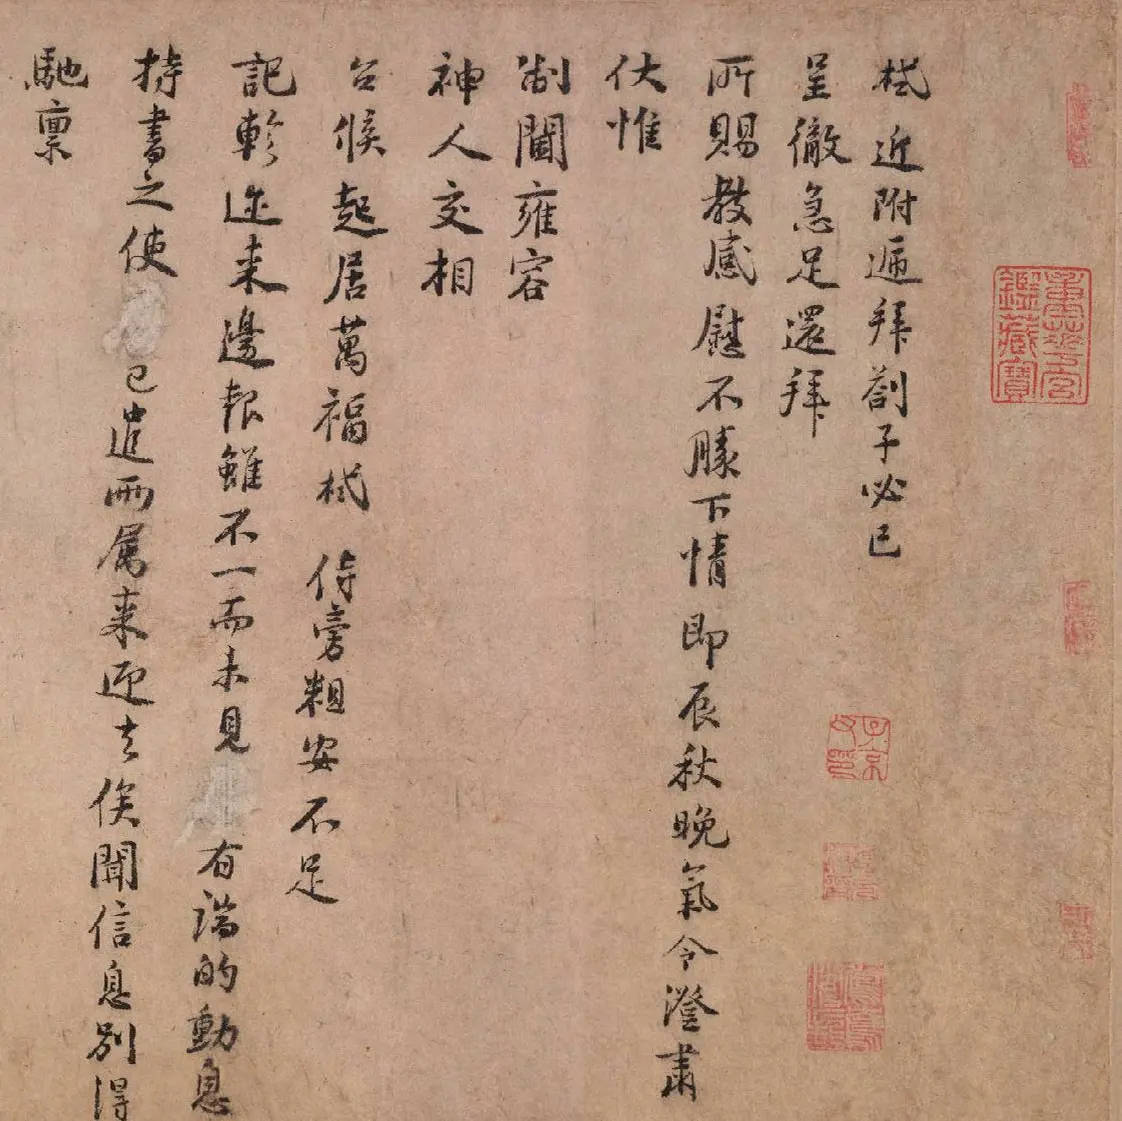 栻近附遞拜劄子必已
呈徹急足還拜
所賜教感慰不勝下情即辰秋晚氣令澄肅
伏惟
制閫雍容
神人交相
台候起居萬福栻侍旁粗安不足
記軫邇来邊報雖不一而未見有端的動息
持書之使已遣兩属来迎之俟聞信息別得
馳稟